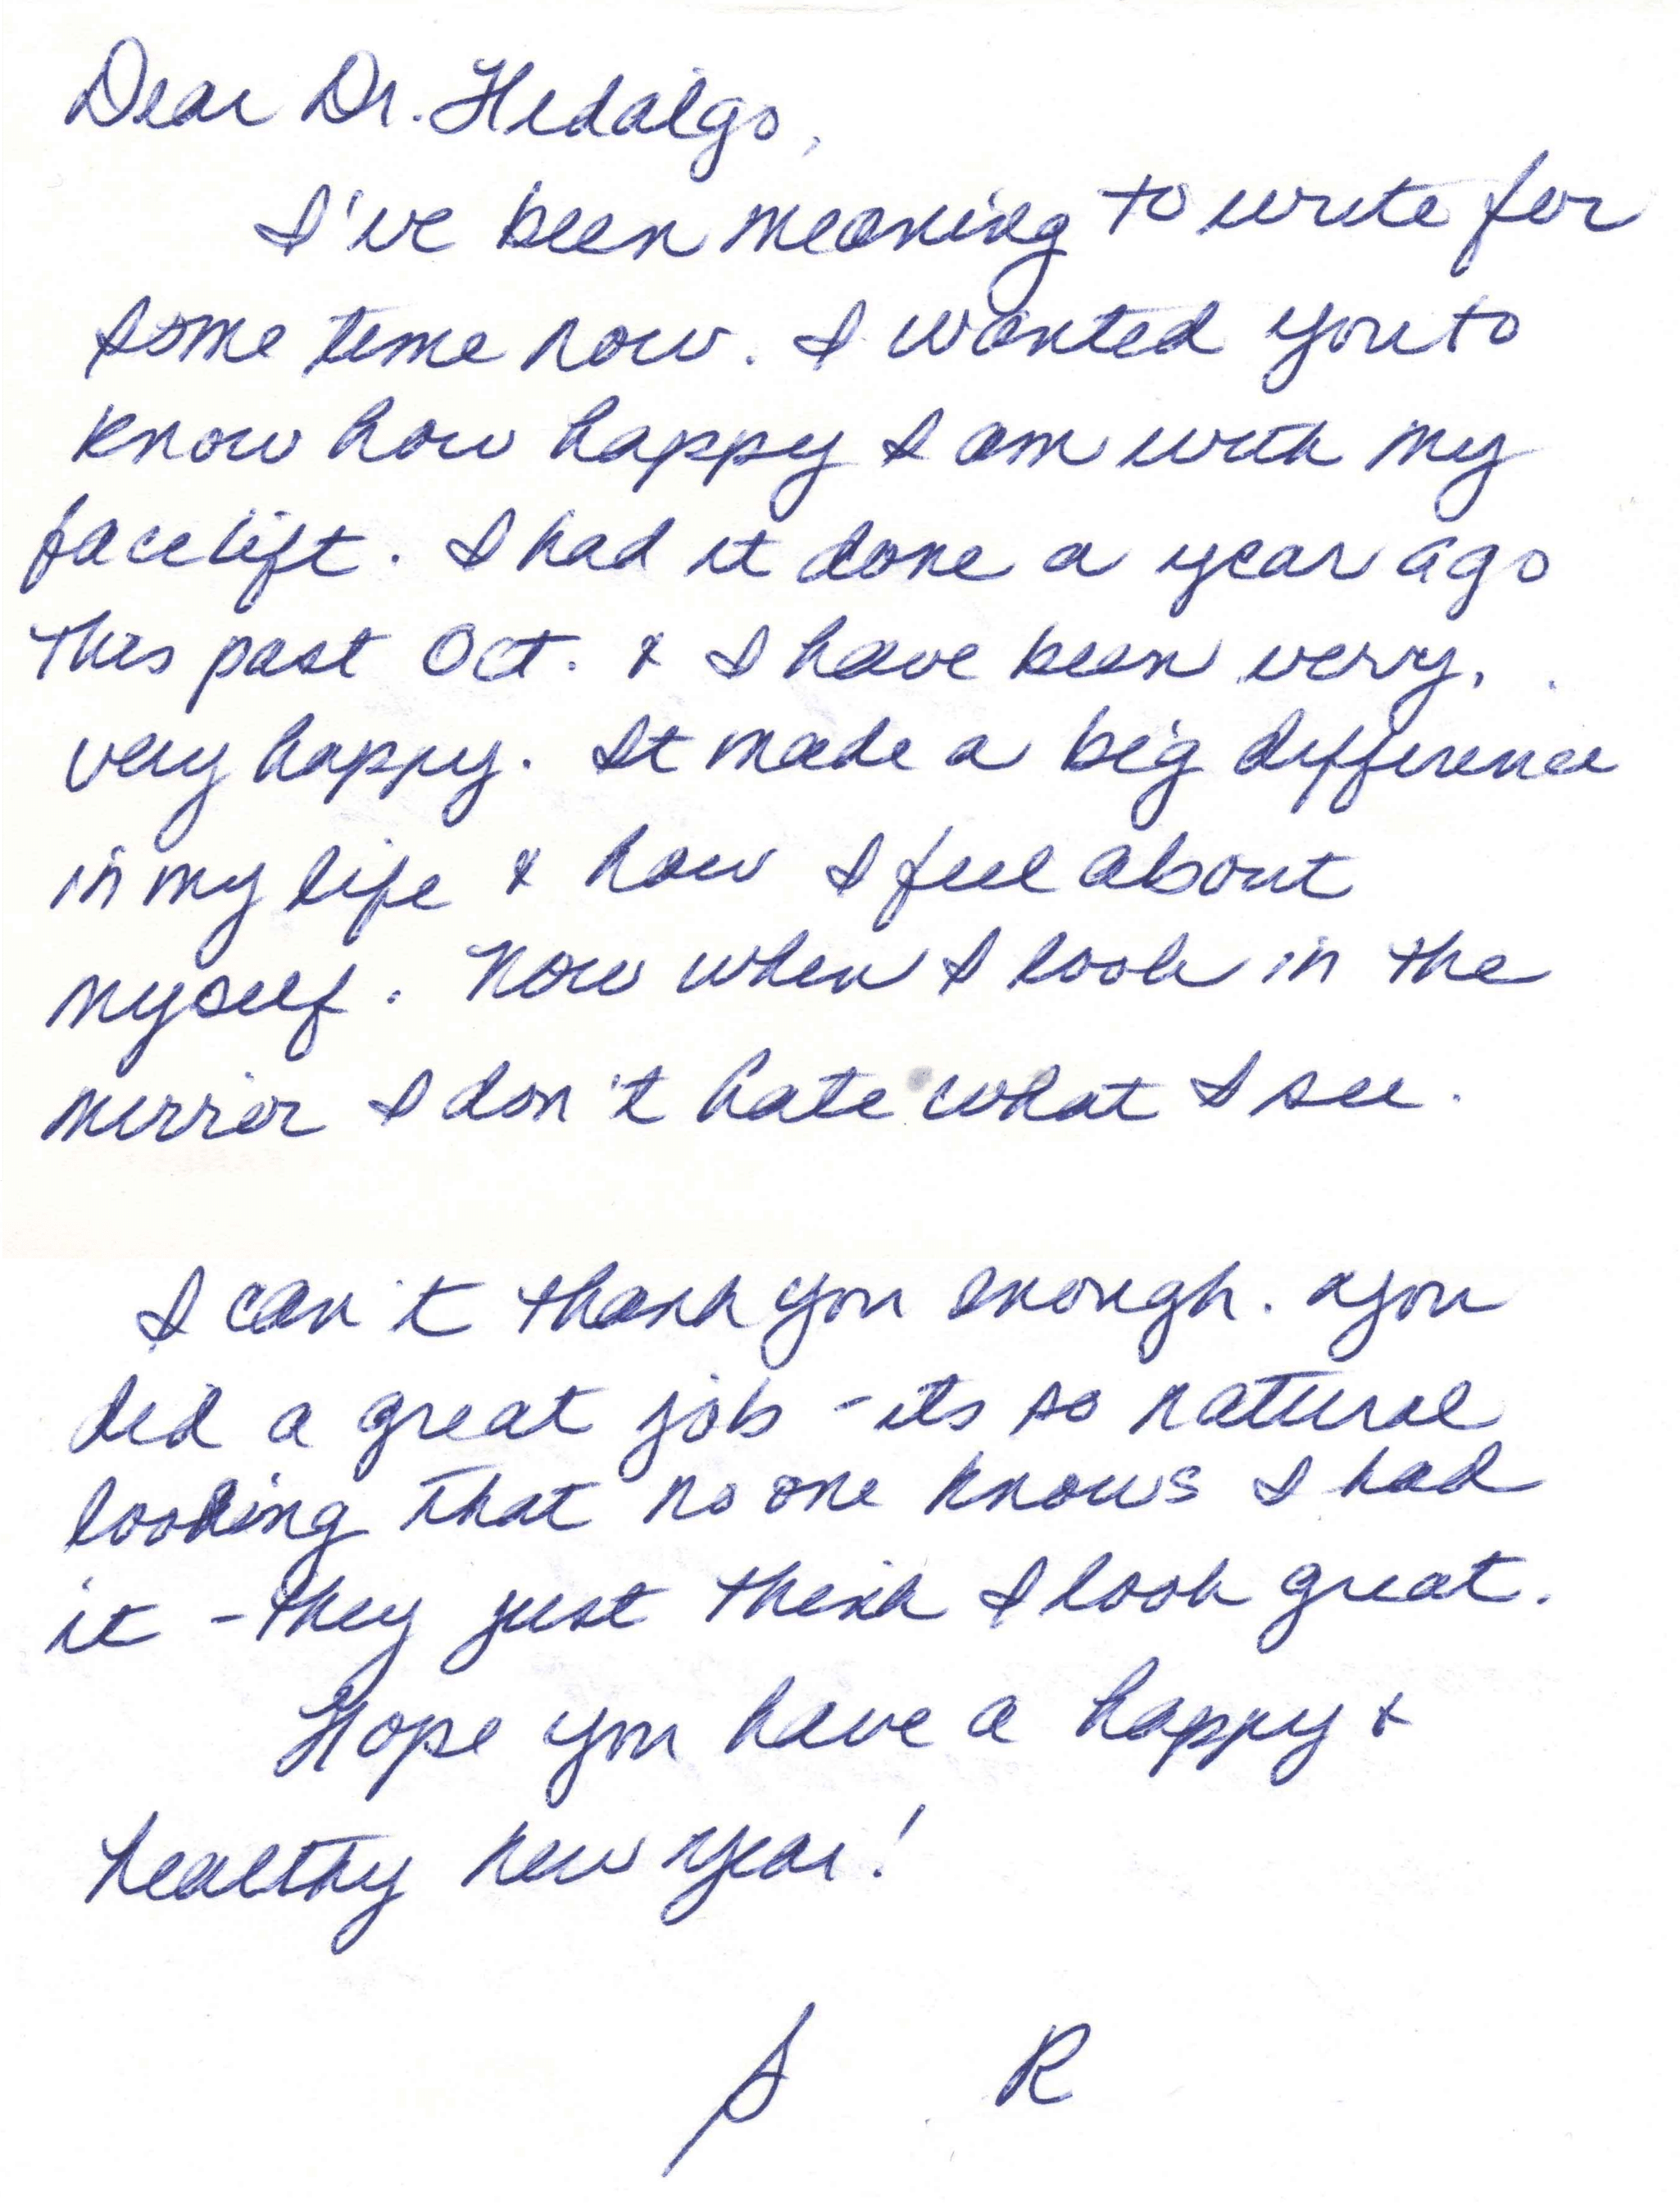 Dear Dr. Hidalgo,
I've been meaning to write for
some time now. I wanted you to
know how happy I am with my
facelift. I had it done a year ago
this past Oct. & I have been very,
very happy. It made a big difference
in my life & how I feel about
myself. Now when I look in the
mirror I don't hate what I see.
I can't thank you enough. You
did a great job - its so natural
looking that no one knows I had
it - they just think I look great.
Hope you have a happy &
healthy new year!
S R